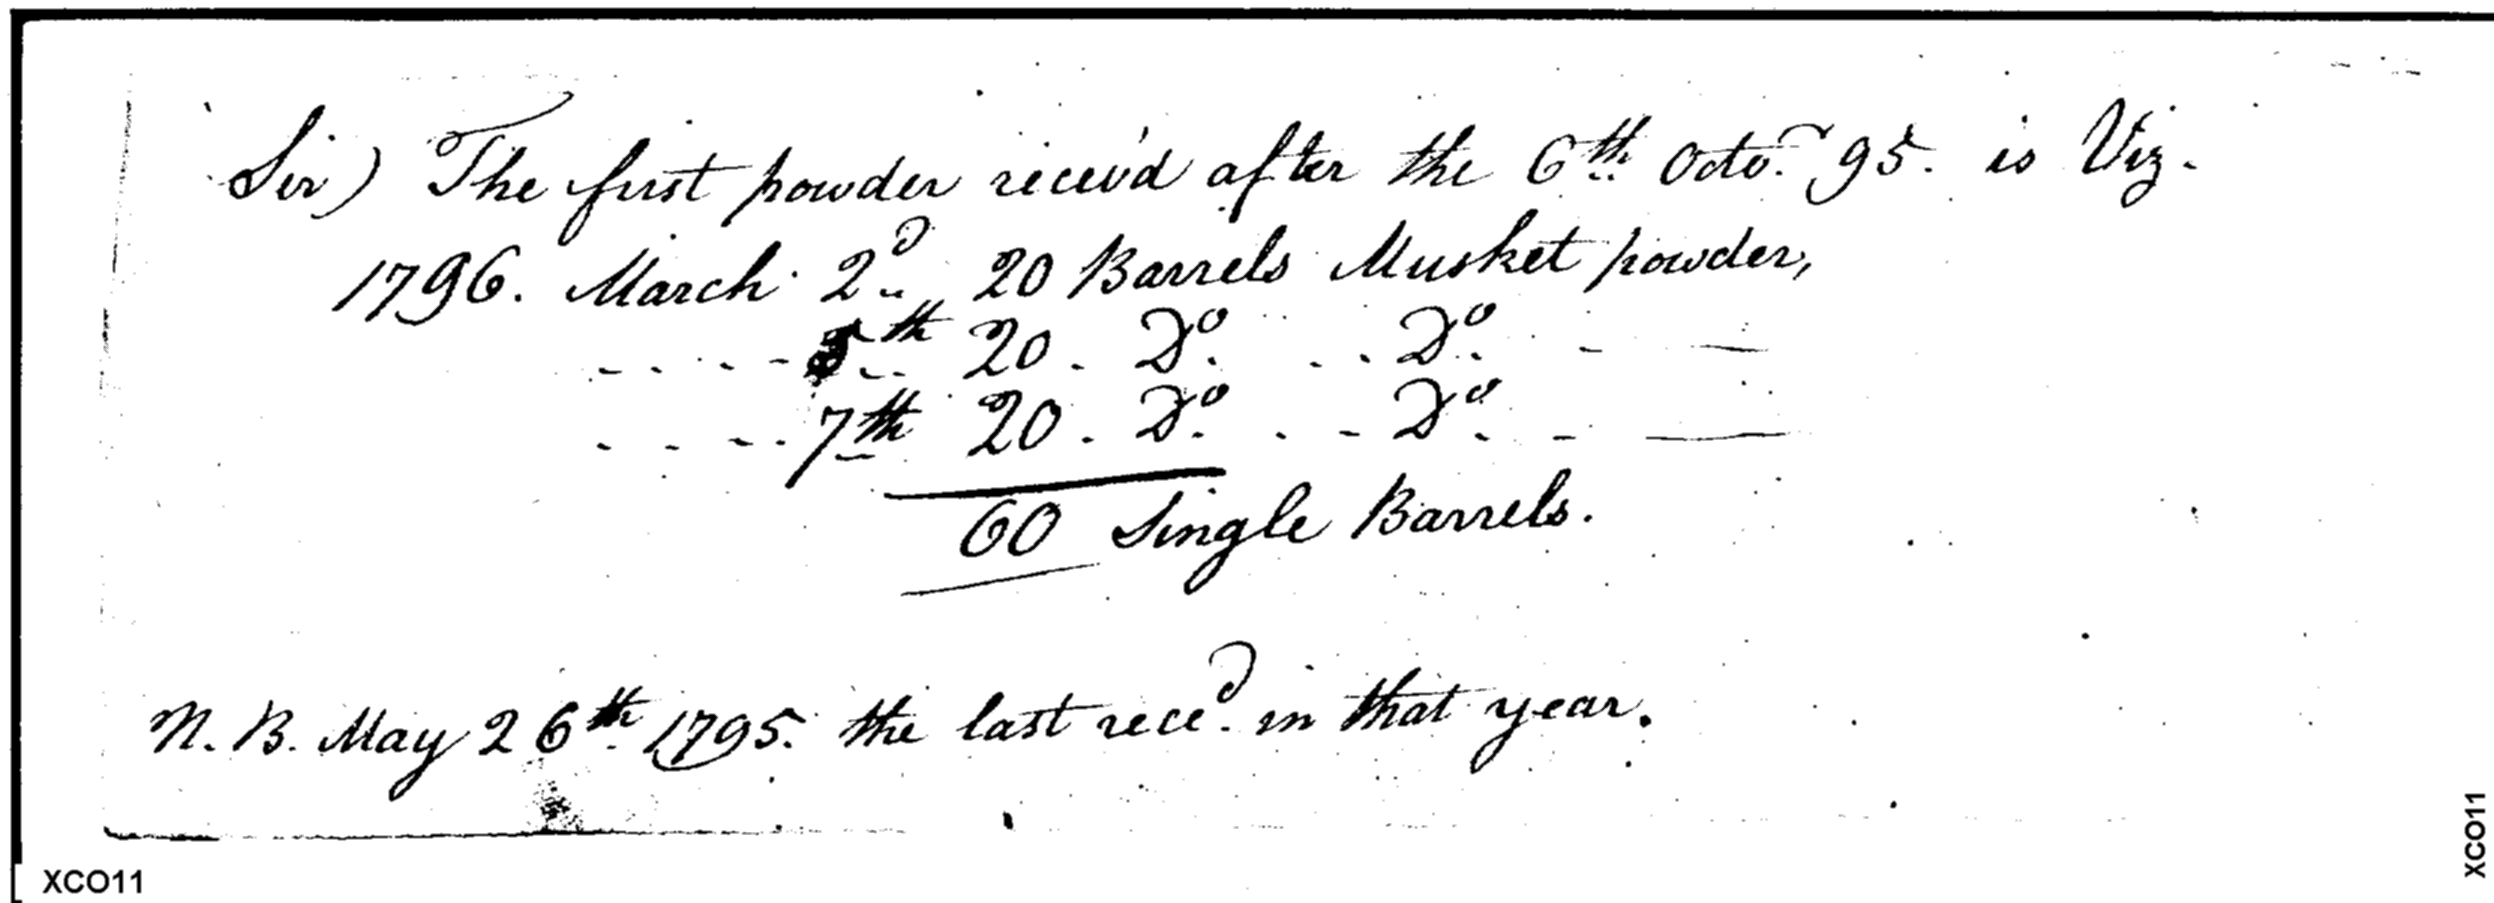 Sir) The first powder receiv'd after the 6th Octo.r 95. is Viz.
1796. March 2d 20 Barrels Musket powder,
- - - - 5th 20 - Do. - - Do. - —
- - - - 7th 20 - Do. - - Do. - —
60 Single Barrels.
N. B. May 26th 1795. the last rece.d in that year.
XCO11
XCO11